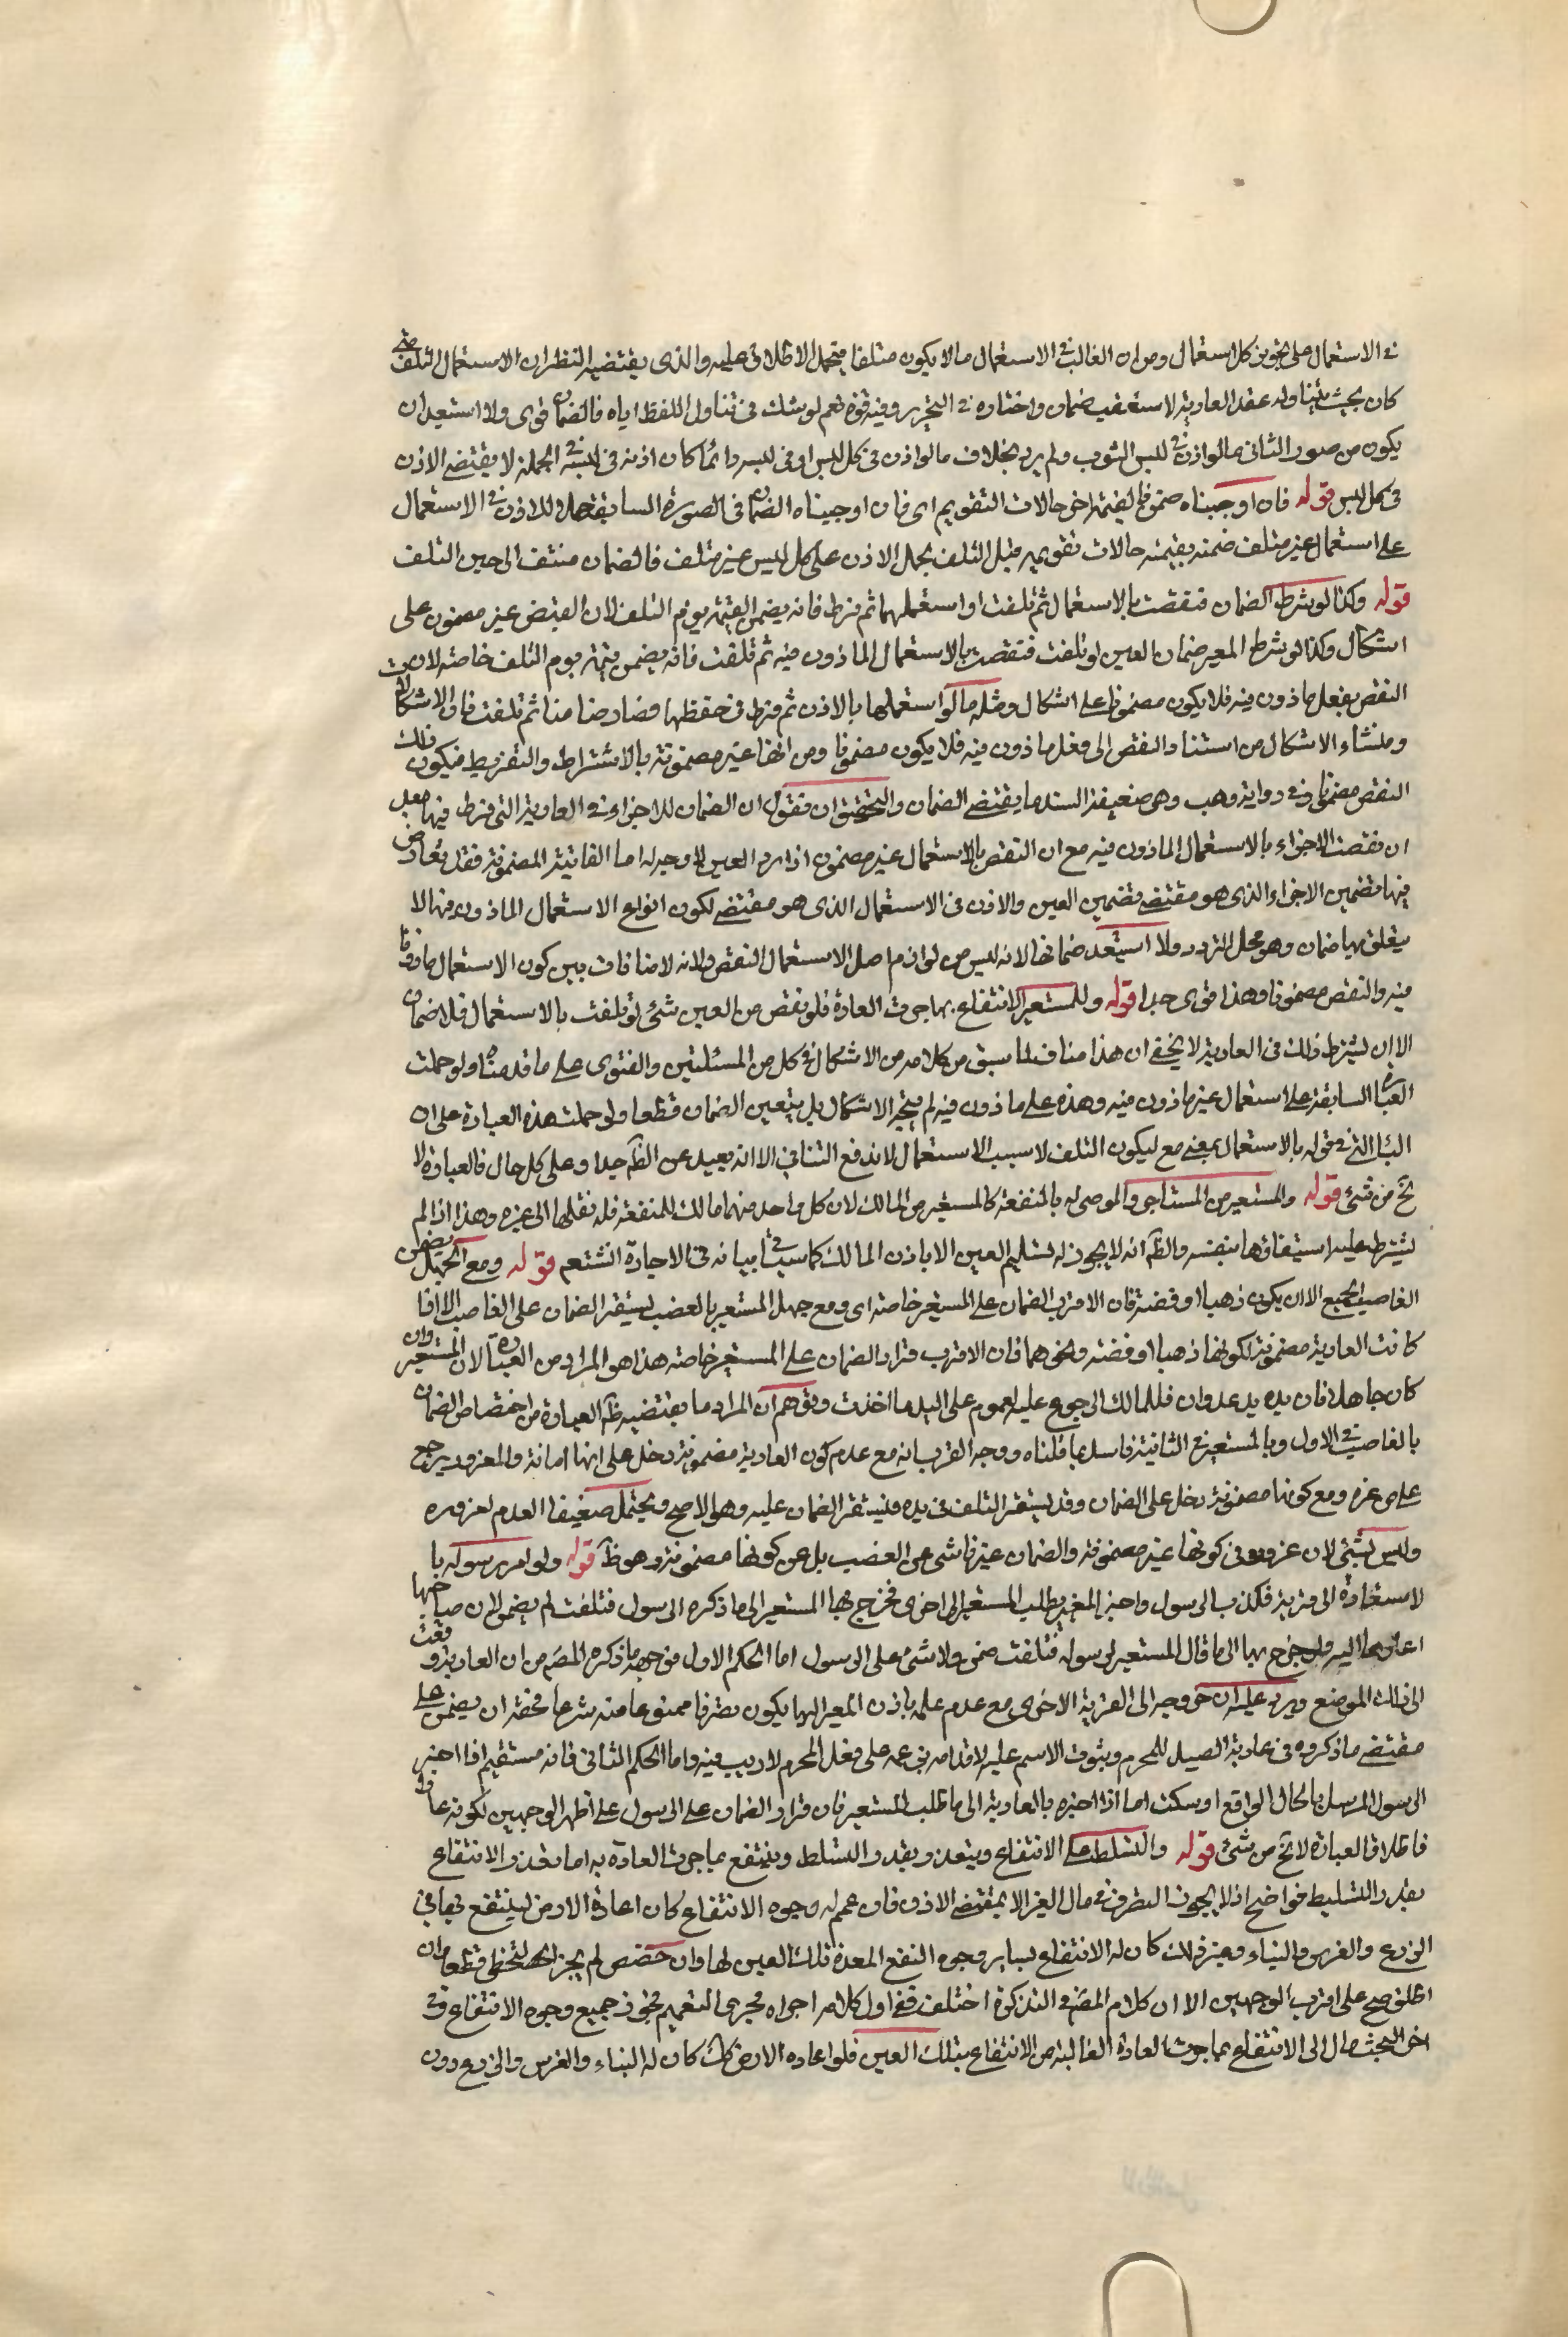 في الاستعمال على تجويز كل استعمال ومن ان الغالب في الاستعمال ما لا يكون متلفا فيحمل الاطلاق عليه والذي يقتضيه النظر ان الاستعمال المتلف متى
كان بحيث يتناوله عقد العارية لا يستعقب ضمان واختاره في التحرير وفيه قوة نعم لو شك في تناول اللفظ اياه فالضمان قوي ولا استبعد ان
يكون من صور الثاني ما لو اذن في لبس الثوب ولم يزد بخلاف ما لو اذن في كل لبس او في لبسه دائما كان اذنه في لبسه في الجملة لا يقتضي الاذن
في كل لبس قوله فان اوجبناه ضمن بقيمته اخر حالات التقويم اي فان اوجبناه الضمان في الصورة السابقة حملا للاذن في الاستعمال
على استعمال غير متلف ضمنه بقيمته حالات تقويمه قبل التلف يحمل الاذن على كل لبس غير متلف فالضمان منتف الى حين التلف
قوله وكذا لو شرط الضمان فنقصت بالاستعمال ثم تلفت او استعملها ثم فرط فانه يضمن القيمة يوم التلف لان القبض غير مضمون على
اشكال وكذا لو شرط المعير ضمان العين لو تلفت فنقصت بالاستعمال الماذون فيه ثم تلفت فانه يضمن قيمته يوم التلف خاصة لان
النقص بفعل ماذون فيه فلا يكون مضمونا على اشكال ومثله ما لو استعملها بالاذن ثم فرط في حفظها فصار ضامنا ثم تلفت فان الاشكال
ومنشاء الاشكال من استناد النقص الى فعل ماذون فيه فلا يكون مضمونا ومن انها عين مضمونة بالاشتراط والتفريط فيكون ذلك
النقص مضمونا وفي رواية وهب وهي ضعيفة السند ما يقتضي الضمان والتحقيق ان نقول ان الضمان للاجزاء في العارية التي فرط فيها بعد
ان نقصت الاجزاء بالاستعمال الماذون فيه مع ان النقص بالاستعمال غير مضمون اذا رد العين لا وجه له اما الفانية المضمونة فقد تعارض
فيها تضمين الاجزاء الذي هو مقتضى تضمين العين والاذن في الاستعمال الذي هو مقتضى لكون انواع الاستعمال الماذون فيها لا
يتعلق بها ضمان وهو محل التردد ولا استبعد ضمانها لانه ليس من لوازم اصل الاستعمال النقص ولانه لا منافات بين كون الاستعمال ماذونا
فيه والنقص مضمونا وهذا قوي جدا قوله وللمستعير الانتفاع بما جرت العادة فلو نقص من العين شئ او تلفت بالاستعمال فلا ضمان
الا ان يشترط ذلك في العارية لا يخفى ان هذا مناف لما سبق من كلامه من الاشكال في كل من المسئلتين والفتوى على ما قدمناه ولو حملت
العبارة السابقة على استعمال غير ماذون فيه وهذه على ماذون فيه لم يتجه الاشكال بل يتعين الضمان قطعا ولو حملت هذه العبارة على ان
الباء التي في قوله بالاستعمال بمعنى مع ليكون التلف لا سبب الاستعمال لاندفع التنافي الا انه بعيد عن الظ جدا وعلى كل حال فالعبارة لا
تخ من شئ قوله والمستعير من المستاجر والموصى له بالمنفعة كالمستعير من المالك لان كل واحد منهما مالك للمنفعة فله نقلها الى غيره وهذا اذا لم
يشترط عليه استيفاؤها بنفسه والظ انه لا يجوز له تسليم العين الا باذن المالك كما سيأتي بيانه في الاجارة انشتعم قوله ومع الجهل يضمن
الغاصب الجميع الا ان يكون ذهبا او فضة فان الاقرب الضمان على المستعير خاصة اي ومع جهل المستعير بالغصب يستقر الضمان على الغاصب الا اذا
كانت العارية مضمونة لكونها ذهبا او فضة ونحوهما فان الاقرب قرار الضمان على المستعير خاصة هذا هو المراد من العبارة لان المستعير وان
كان جاهلا فان يده يد عدوان فللمالك الرجوع عليه لعموم على اليد ما اخذت وتوهم ان المراد ما يقتضيه ظ العبارة من اختصاص الضمان
بالغاصب في الاول وبالمستعير في الثانية فاسد بما قلناه ووجه القرب انه مع عدم كون العارية مضمونة دخل على انها امانة والمغرور يرجع
على من غره ومع كونها مضمونة دخل على الضمان وقد يستقر التلف في يده فليستقر الضمان عليه وهو الاصح ويحتمل ضعيفا العدم لغروره
وليس بشئ لان غروره في كونها غير مضمونة والضمان غير ناشئ عن الغصب بل عن كونها مضمونة وهو ظ قوله ولو امر رسوله با
لاستعارة الى قرية فكذب الرسول واخبر المعير بطلب المستعير الى اخرى فخرج بها المستعير الى ما ذكره الرسول فتلفت لم يضمن لان صاحبها
اعارها اليه ولو خرج بها الى ما قال المستعير لرسوله فتلفت ضمن ولا شئ على الرسول اما الحكم الاول فوجهه ما ذكره المص من ان العارية وقعت
الى ذلك الموضع ويرد عليه ان خروجه الى القرية الاخرى مع عدم علمه باذن المعير اليها يكون تصرفا ممنوعا منه شرعا فحقه ان يضمن على
مقتضى ما ذكروه في عارية الصيد للمحرم وثبوت الاسم عليه لاقدامه بزعمه على فعل المحرم لا ريب فيه واما الحكم الثاني فانه مستقيم اذا اخبر
الرسول المرسل بالحال الواقع او سكت اما اذا اخبره بالعارية الى ما طلب المستعير فان قرار الضمان على الرسول على اظهر الوجهين لكونه غارا
فاطلاق العبارة لا تخ من شئ قوله والتسلط على الانتفاع ويتعدد بقدر التسلط وينتفع بما جرت العادة به اما تقدر الانتفاع
بقدر التسليط فواضح اذ لا يجوز التصرف في مال الغير الا بمقتضى الاذن فان عمم له وجوه الانتفاع كان اعارة الارض لينتفع بها في
الزرع والغرس والبناء وغير ذلك كان له الانتفاع بساير وجوه النفع المعدة تلك العين لها وان خصص لم يجز التخطي قطعا وان
اطلق صح على اقرب الوجهين الا ان كلام المص في التذكرة اختلف ففي اول كلامه اجراه مجرى التعميم فجوز جميع وجوه الانتفاع وفي
اخر البحث مال الى الانتفاع بما جرت العادة الغالبة من الانتفاع بتلك العين فلو اعاره الارض كك كان له البناء والغرس والزرع دون